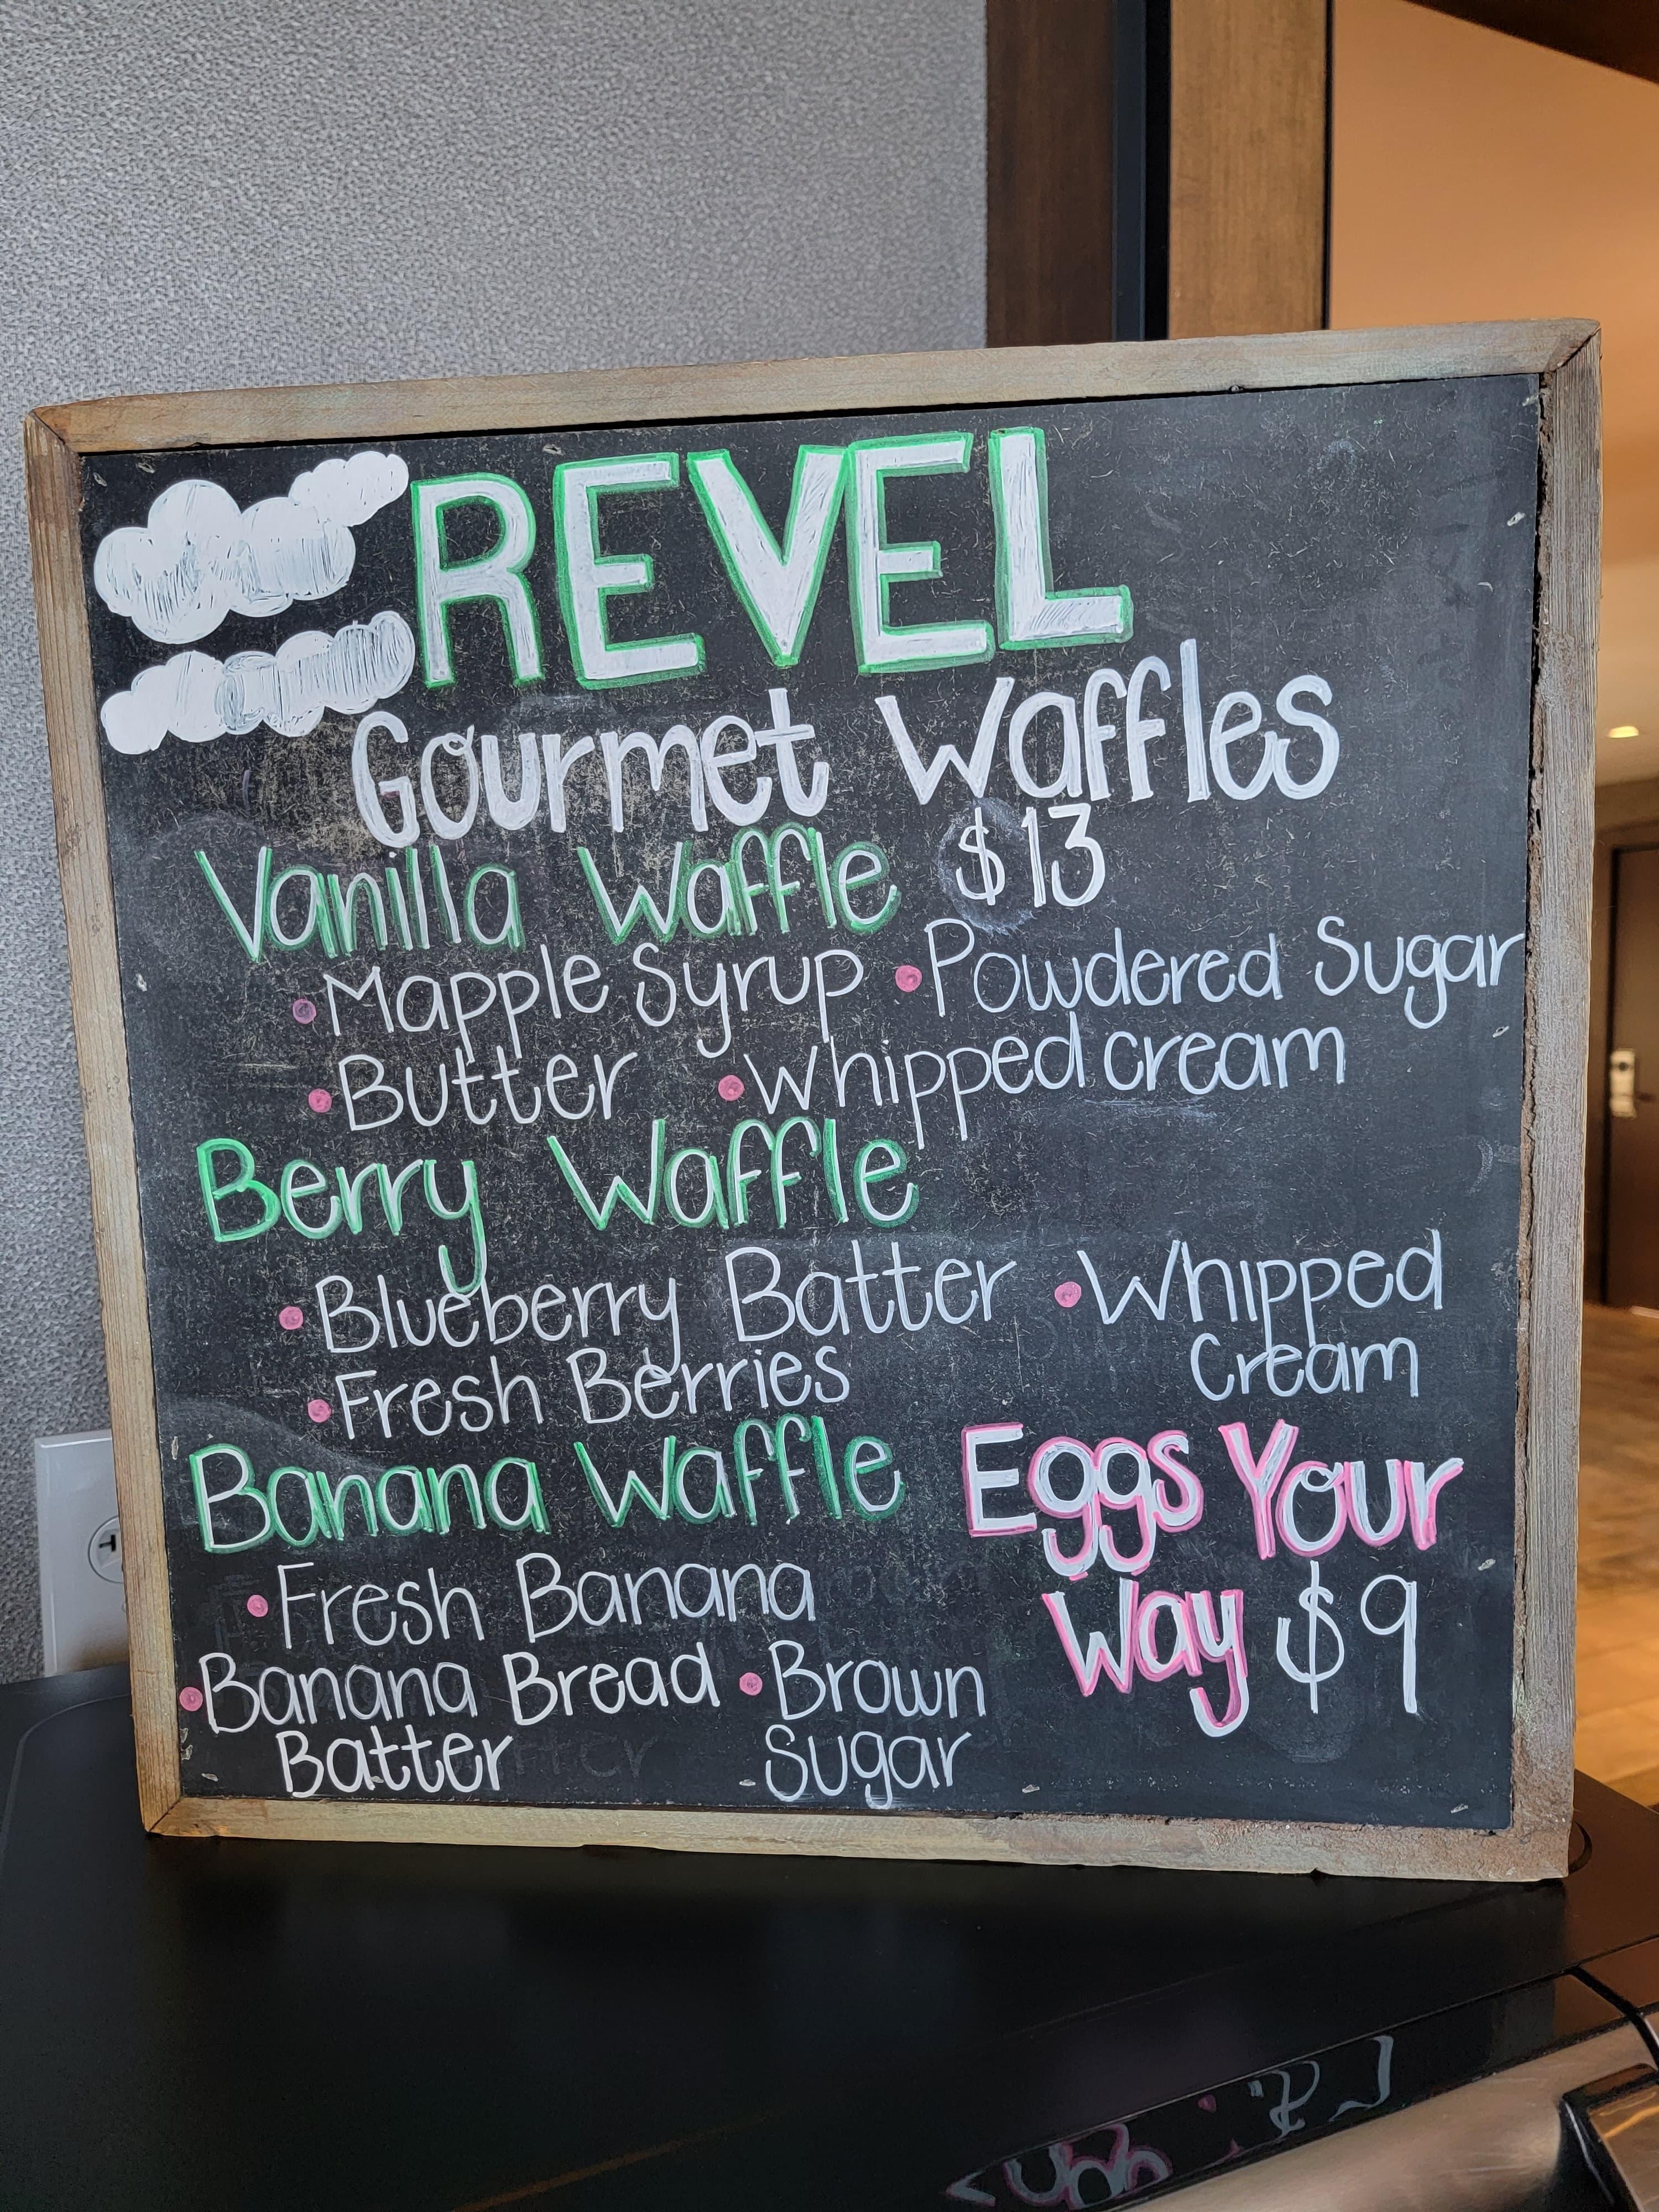 REVEL
Gourmet Waffles
Vanilla Waffle $13
• Mapple Syrup • Powdered Sugar
• Butter • Whipped cream
Berry Waffle
• Blueberry Batter • Whipped
Cream
• Fresh Berries
Banana Waffle
• Fresh Banana
• Banana Bread
Batter
• Brown
Sugar
Eggs Your
Way $9